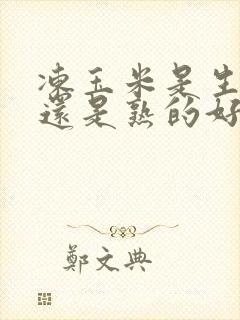 凍玉米是生
還是熟的好
鄭文典